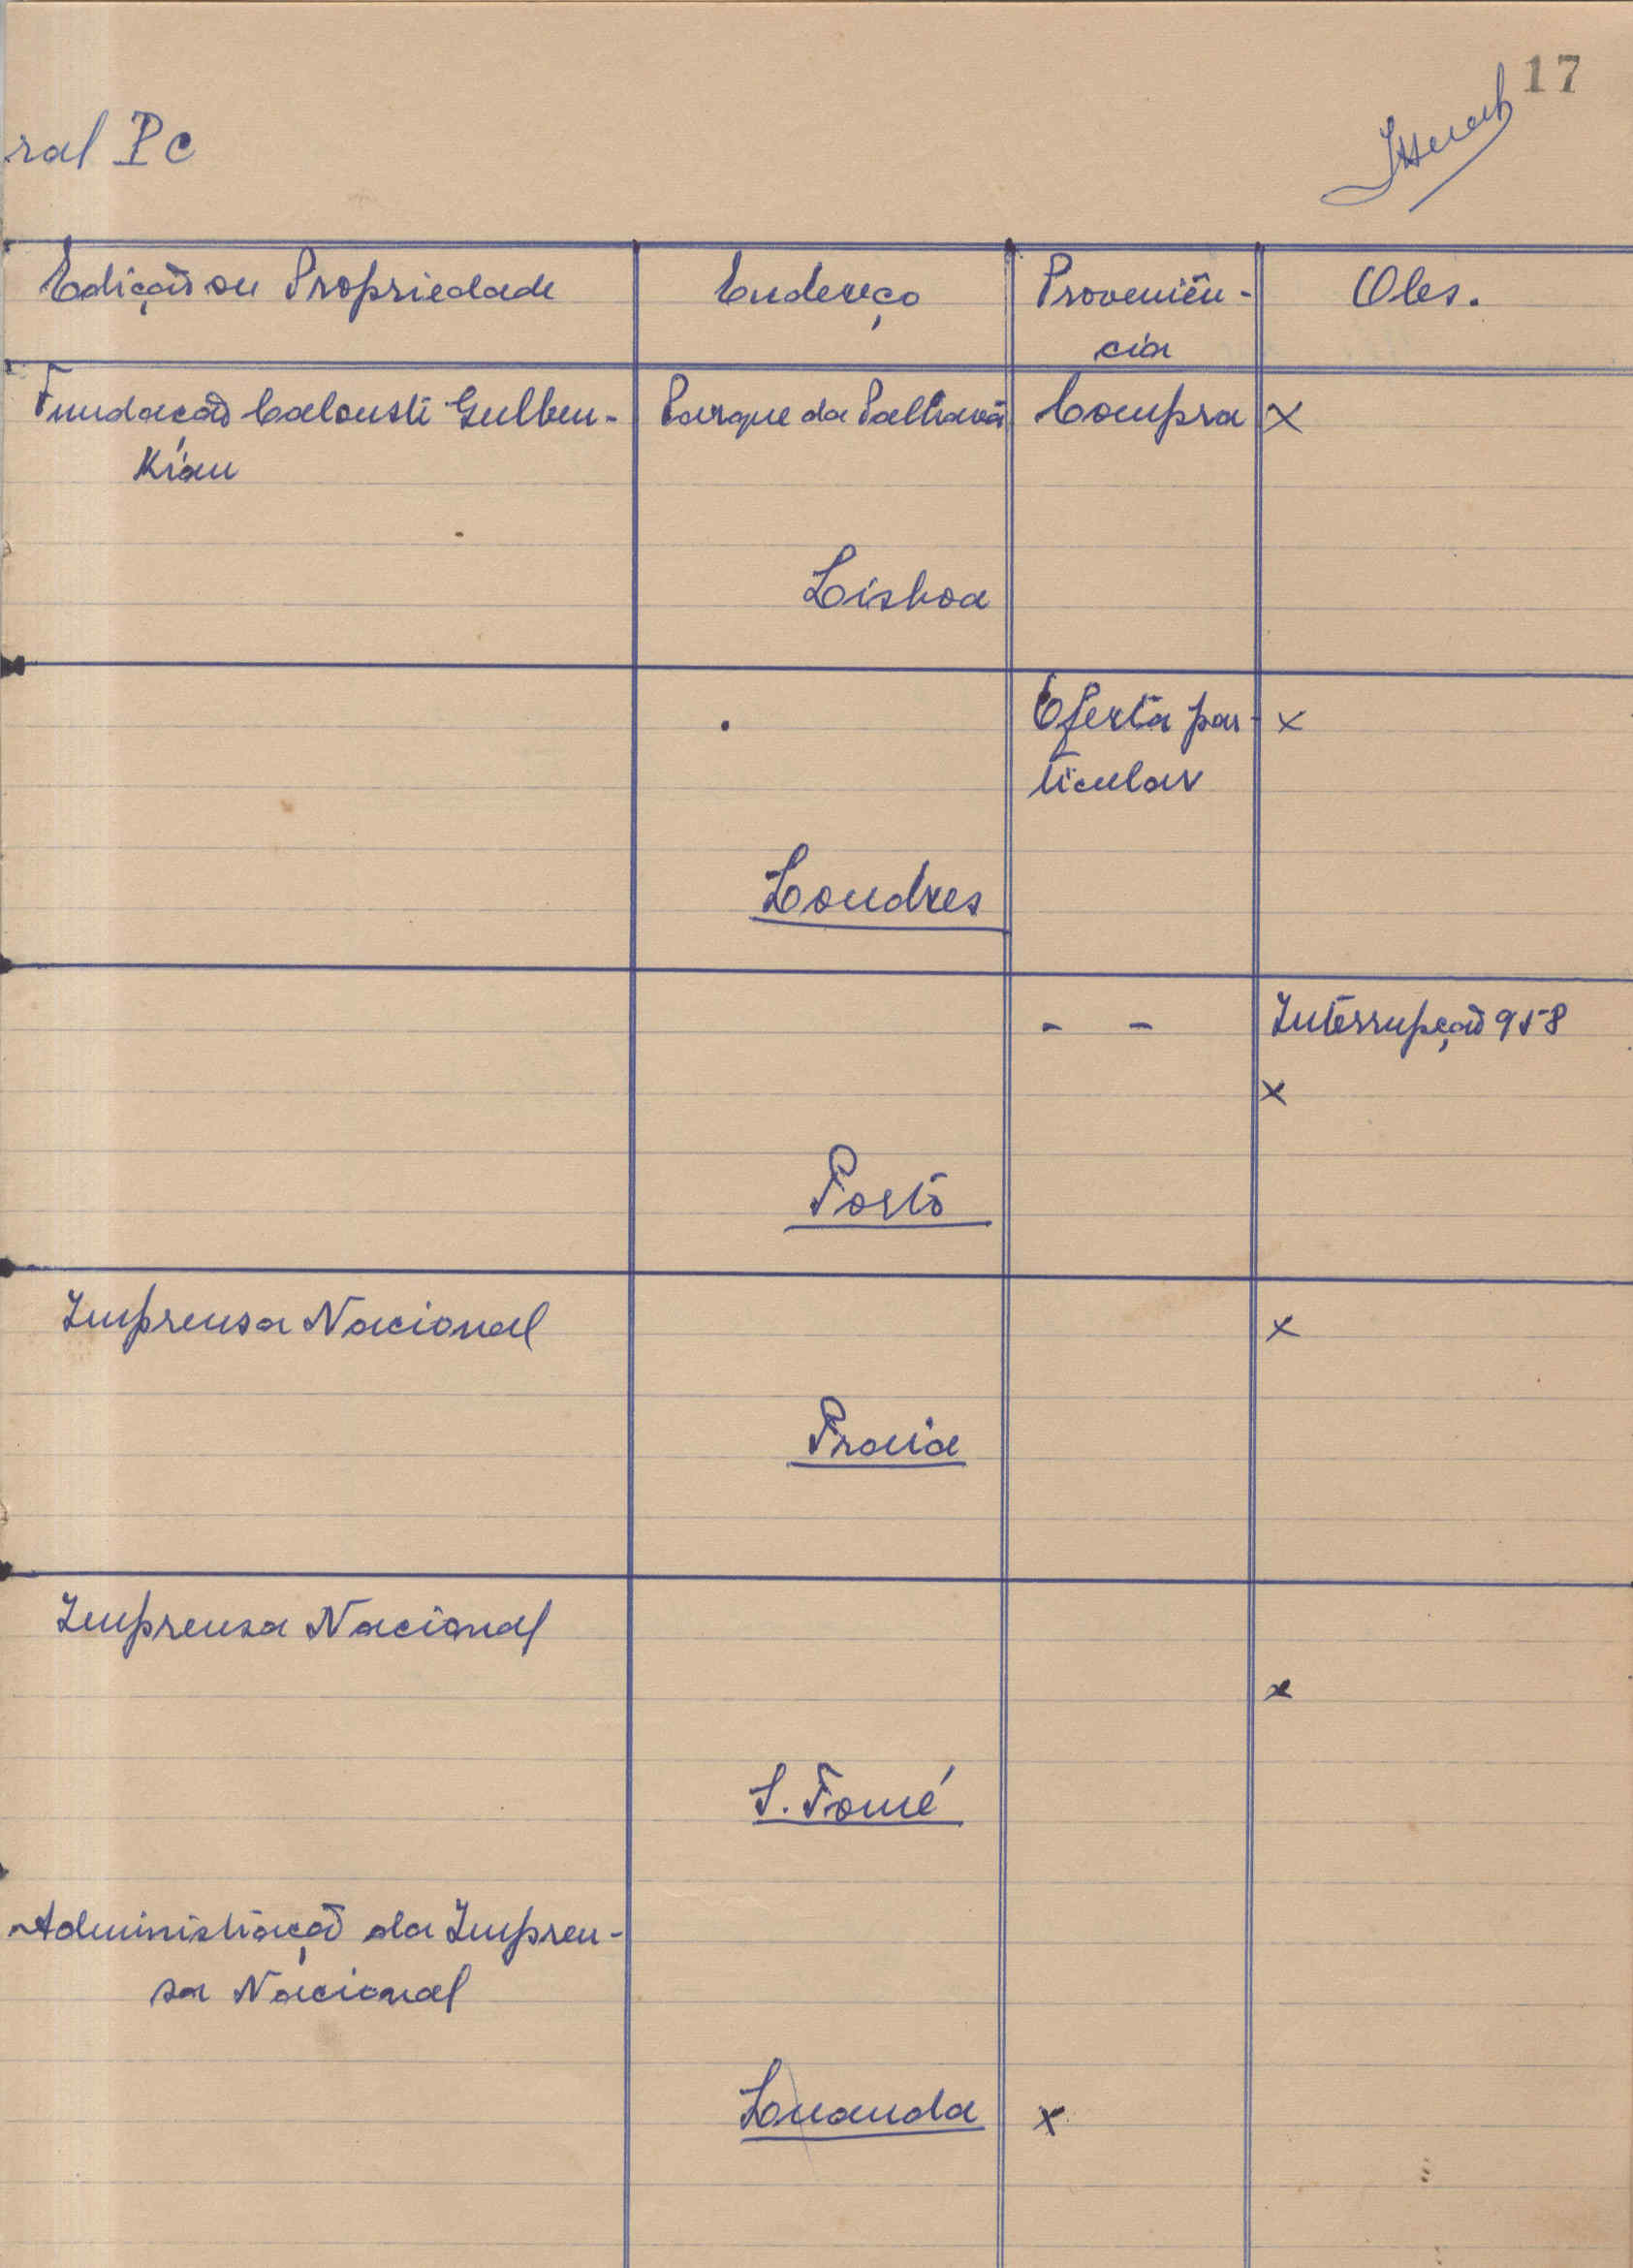 17
ral Pc
Edição ou Propriedade Endereço Proveniên- Obs.
cia
Fundação Calouste Gulben- Parque da Palhavã Compra x
Kian
Lisboa
Oferta par- x
ticular
Londres
- - Interrupção 958
x
Porto
Imprensa Nacional x
Praia
Imprensa Nacional
x
S. Tomé
Administração da Impren-
sa Nacional
Luanda x